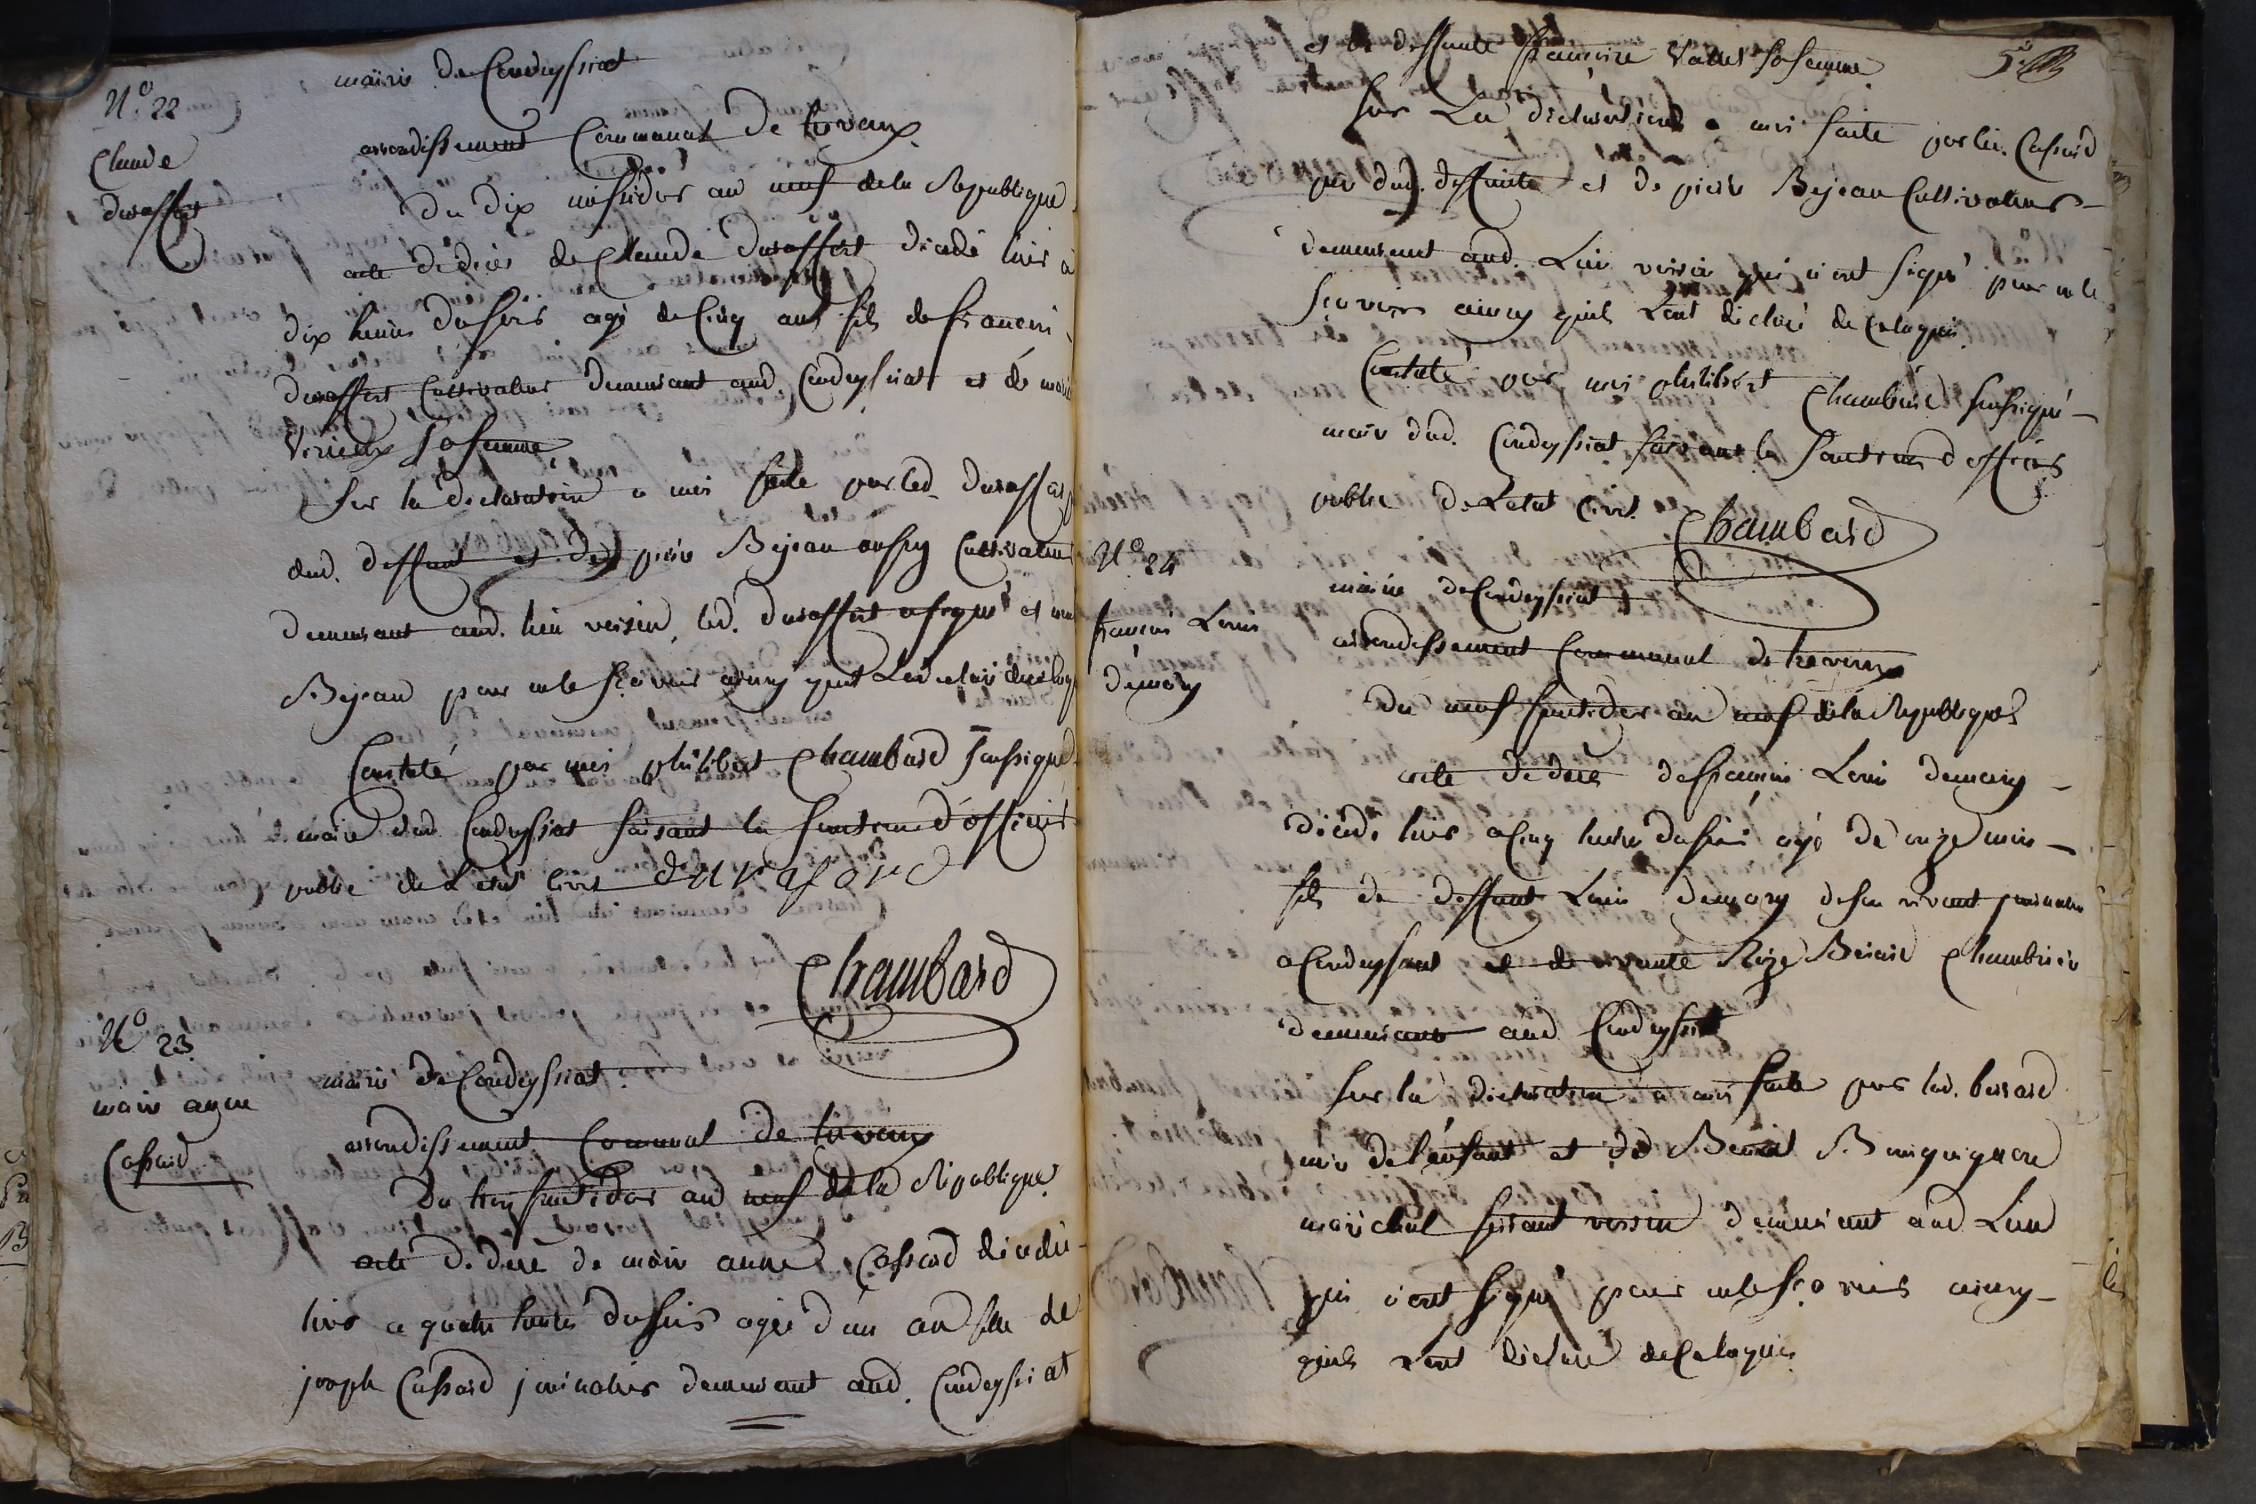 N.º 22
Claude
duraffort
mairie de Condeyssiat
arrondissement Communal de trevoux
Du dix messidor an neuf de la Republique
acte dedeces de Claude duraffort decedé hier a
dix heures du soir agé de Cinq ans fils de francois
duraffort Cultivateur demeurant aud. Condeyssiat et de marie
Verieux sa femme
Sur la declaration a moi faite par led. duraffort
dud. deffunt et de pierre Bejean aussy Cultivateur
demeurant aud. lieu voisin, led. duraffort a signé et non
Bejean pour ne le scavoir ainsy quil la declaré de ce
Constaté par moi philibert Chambard soussigné
maire dud. Condeyssiat faisant les fonctions d'officier
public de Letat Civil duraford
Chambard
N.º 23
marie anne
Cassard
mairie de Condeyssiat
arrondissement Communal de trevoux
Du trois fructidor an neuf de la Republique
acte de deces de marie anne Cassard decedée
hier a quatre heures du soir agée d'un an fille de
joseph Cassard journalier demeurant aud. Condeyssiat
5.e
et de deffunte francoise Vallet sa femme
Sur La declaration a moi faite par led. Cassard
pere dud. deffunte et de pierre Bejean Cultivateur
demeurant aud. Lieu voisin qui n'ont signé pour ne le
scavoir ainsy quils Lont declaré de Ce Requis
Constaté par moi philibert Chambard soussigné
maire dud. Condeyssiat faisant les fonctions d'officier
public de Letat Civil. Chambard
N.º 24
francois Louis
demory
mairie de Condeyssiat
arrondissement Communal de trevoux
Du neuf fructidor an neuf de la Republique
acte de deces de francois Louis demory
decedé hier a Cinq heures du soir agé de onze mois
fils de deffunt Louis demory de son vivant journalier
a Condeyssiat et de vivante Roze Berard Chambriere
demeurant aud Condeyssiat
Sur la declaration a moi faite par lad. berard
mere de l'enfant et de Benoit
marechal ferrant voisin demeurant aud Lieu
qui n'ont signé pour ne le scavoir ainsy
quils Lont declaré de Ce Requis